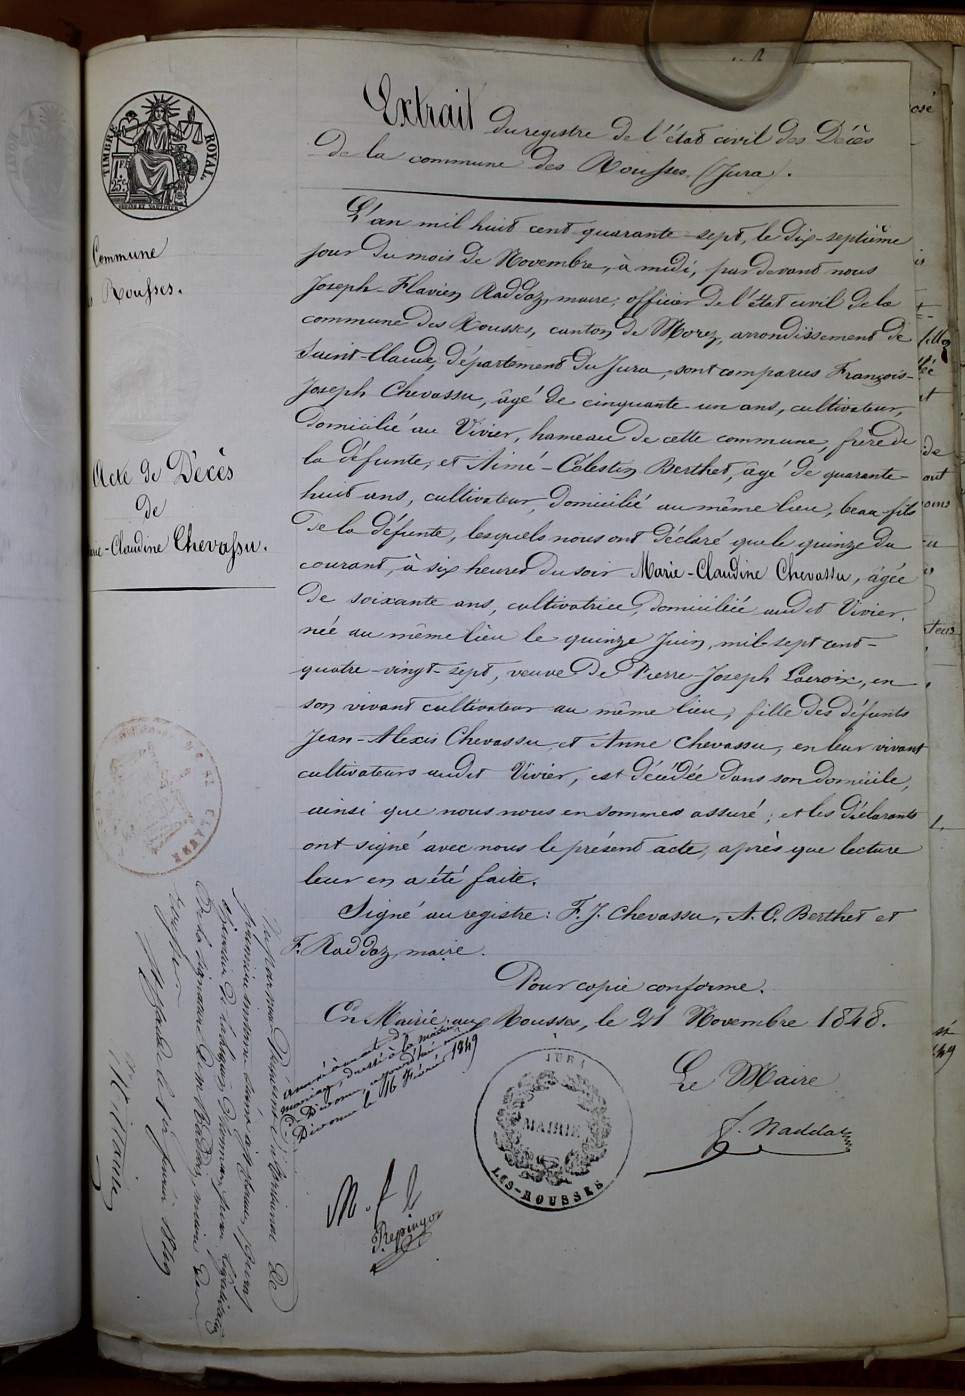 Extrait du registre de l'état civil des Décès
de la commune des Rousses (Jura).
TIMBRE ROYAL.
1 F.
25 c.
Commune
Rousses.
Acte de Décès
de
Claudine Chevassu.
L'an mil huit cent quarante-sept, le dix-septième
jour du mois de Novembre, à midi, par devant nous
Joseph-Flavien Raddaz, maire, officier de l'état civil de la
commune des Rousses, canton de Morez, arrondissement de
Saint-Claude, département du Jura, sont comparus François-
Joseph Chevassu, âgé de cinquante-un ans, cultivateur,
domicilié au Vivier, hameau de cette commune, frère de
la défunte, et Aimé-Célestin Berthet, âgé de quarante-
huit ans, cultivateur, domicilié au même lieu, beau-fils
de la défunte, lesquels nous ont déclaré que le quinze du
courant, à six heures du soir Marie-Claudine Chevassu, âgée
de soixante ans, cultivatrice, domiciliée audit Vivier,
née au même lieu le quinze Juin, mil sept cent-
quatre-vingt-sept, veuve de Pierre-Joseph Lacroix, en
son vivant cultivateur au même lieu, fille des défunts
Jean-Alexis Chevassu et Anne Chevassu, en leur vivant
cultivateurs audit Vivier, est décédée dans son domicile,
ainsi que nous nous en sommes assuré; et les déclarants
ont signé avec nous le présent acte, après que lecture
leur en a été faite.
Signé au registre: F. J. Chevassu, A. C. Berthet et
F. Raddaz, maire.
Pour copie conforme.
En Mairie aux Rousses, le 21 Novembre 1848.
Le Maire
F. Raddaz
JURA
MAIRIE
LES-ROUSSES
mariage, à la mairie
de Divonne,
Divonne le février 1849
M. f l
de la signature de M. Raddaz, maire des